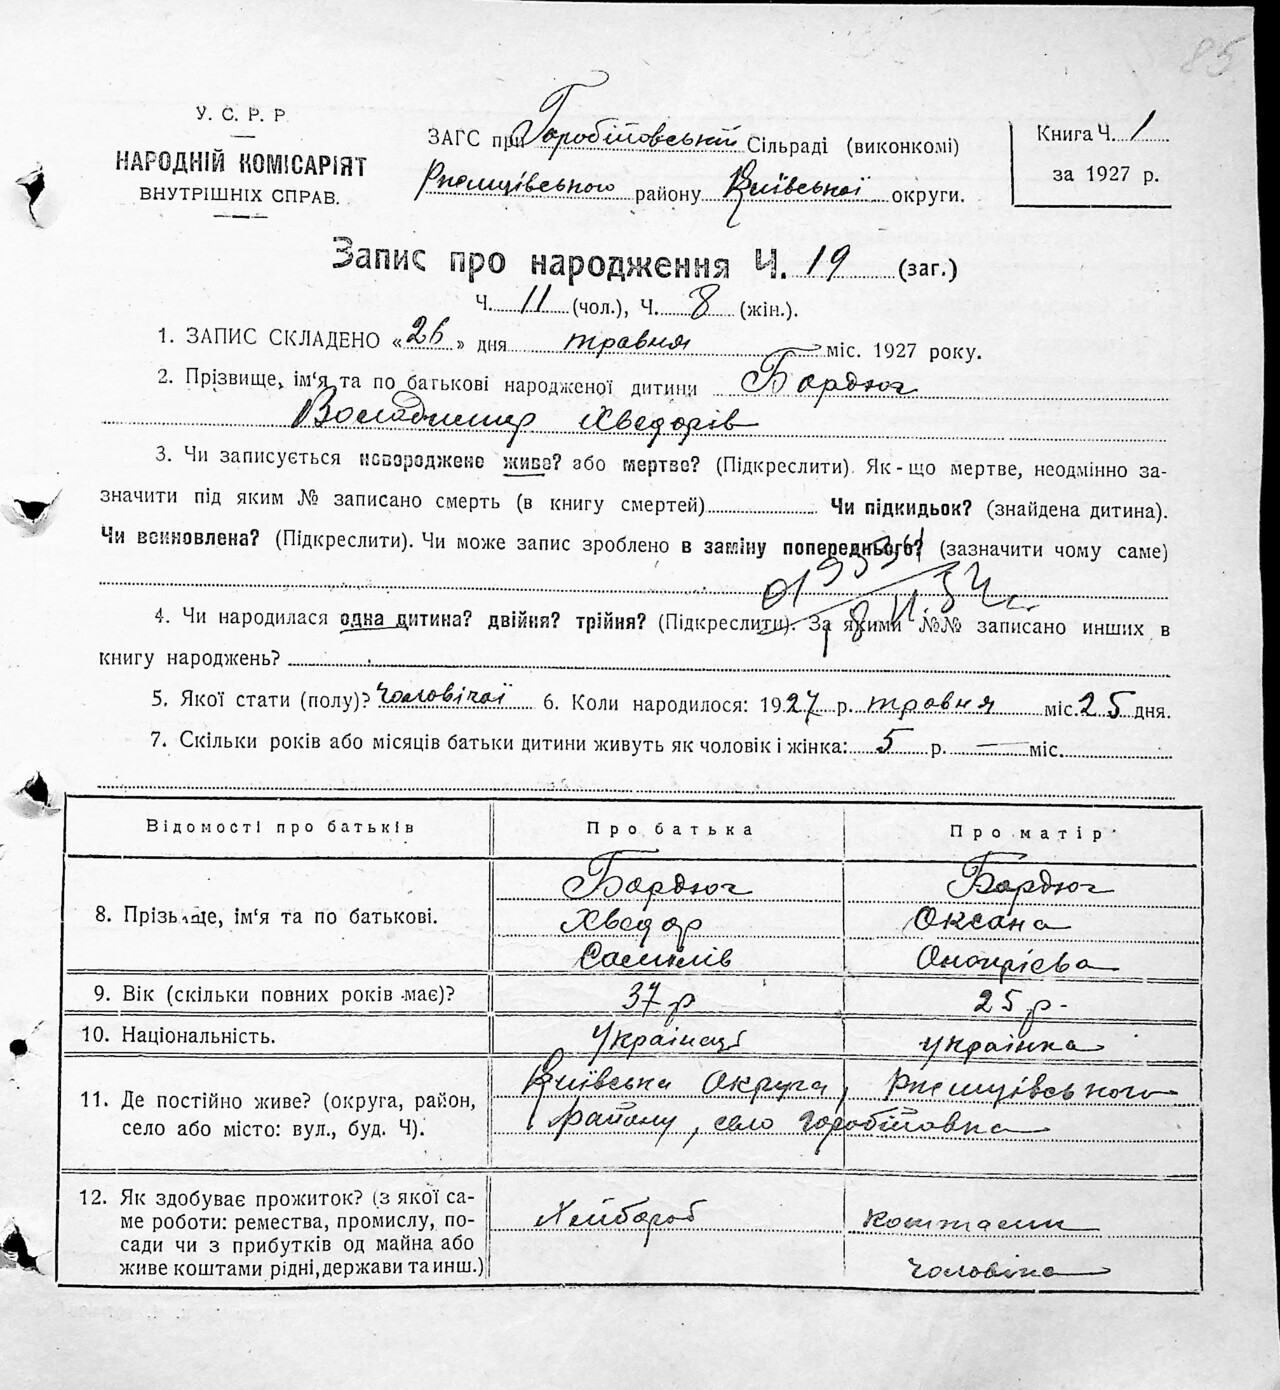 85
У. С. Р. Р
НАРОДНІЙ КОМІСАРІЯТ
ВНУТРІШНІХ СПРАВ.
ЗАГС при Горобіївській Сільраді (виконкомі)
Ржищівського району Київської округи.
Книга Ч. 1
за 1927 р.
Запис про народження Ч. 19 (заг.)
Ч. 11 (чол.), Ч. 8 (жін.).
1. ЗАПИС СКЛАДЕНО «26» дня травня міс. 1927 року.
2. Прізвище, ім'я та по батькові народженої дитини Бардюг
Володимир Хведорів
3. Чи записується новороджене живе? або мертве? (Підкреслити). Як-що мертве, неодмінно за-
значити під яким № записано смерть (в книгу смертей) Чи підкидьок? (знайдена дитина).
Чи всиновлена? (Підкреслити). Чи може запис зроблено в заміну попереднього? (зазначити чому саме)
4. Чи народилася одна дитина? двійня? трійня? (Підкреслити). За якими №№ записано инших в
книгу народжень?
5. Якої стати (полу)? Чоловічої 6. Коли народилося: 1927 р. травня міс. 25 дня.
7. Скільки років або місяців батьки дитини живуть як чоловік і жінка: 5 р. — міс.
Відомості про батьків Про батька Про матір
8. Прізвище, ім'я та по батькові.
Бардюг Бардюг
Хведор Оксана
Самійлів Онопрієва
9. Вік (скільки повних років має)? 37 р 25 р.
10. Національність. Українец українка
11. Де постійно живе? (округа, район,
село або місто: вул., буд. Ч).
Київська Округа, Ржищівського
району, село Горобіївка
12. Як здобуває прожиток? (з якої са-
ме роботи: ремества, промислу, по-
сади чи з прибутків од майна або
живе коштами рідні, держави та инш.)
Хлібороб коштами
чоловіка